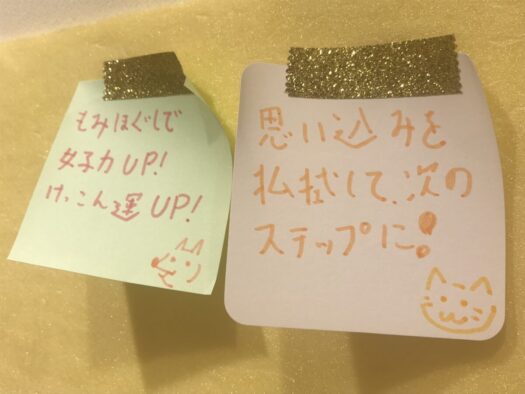 もみほぐしで
女子力UP!
けっこん運UP!
思い込みを
払拭して、次の
ステップに!